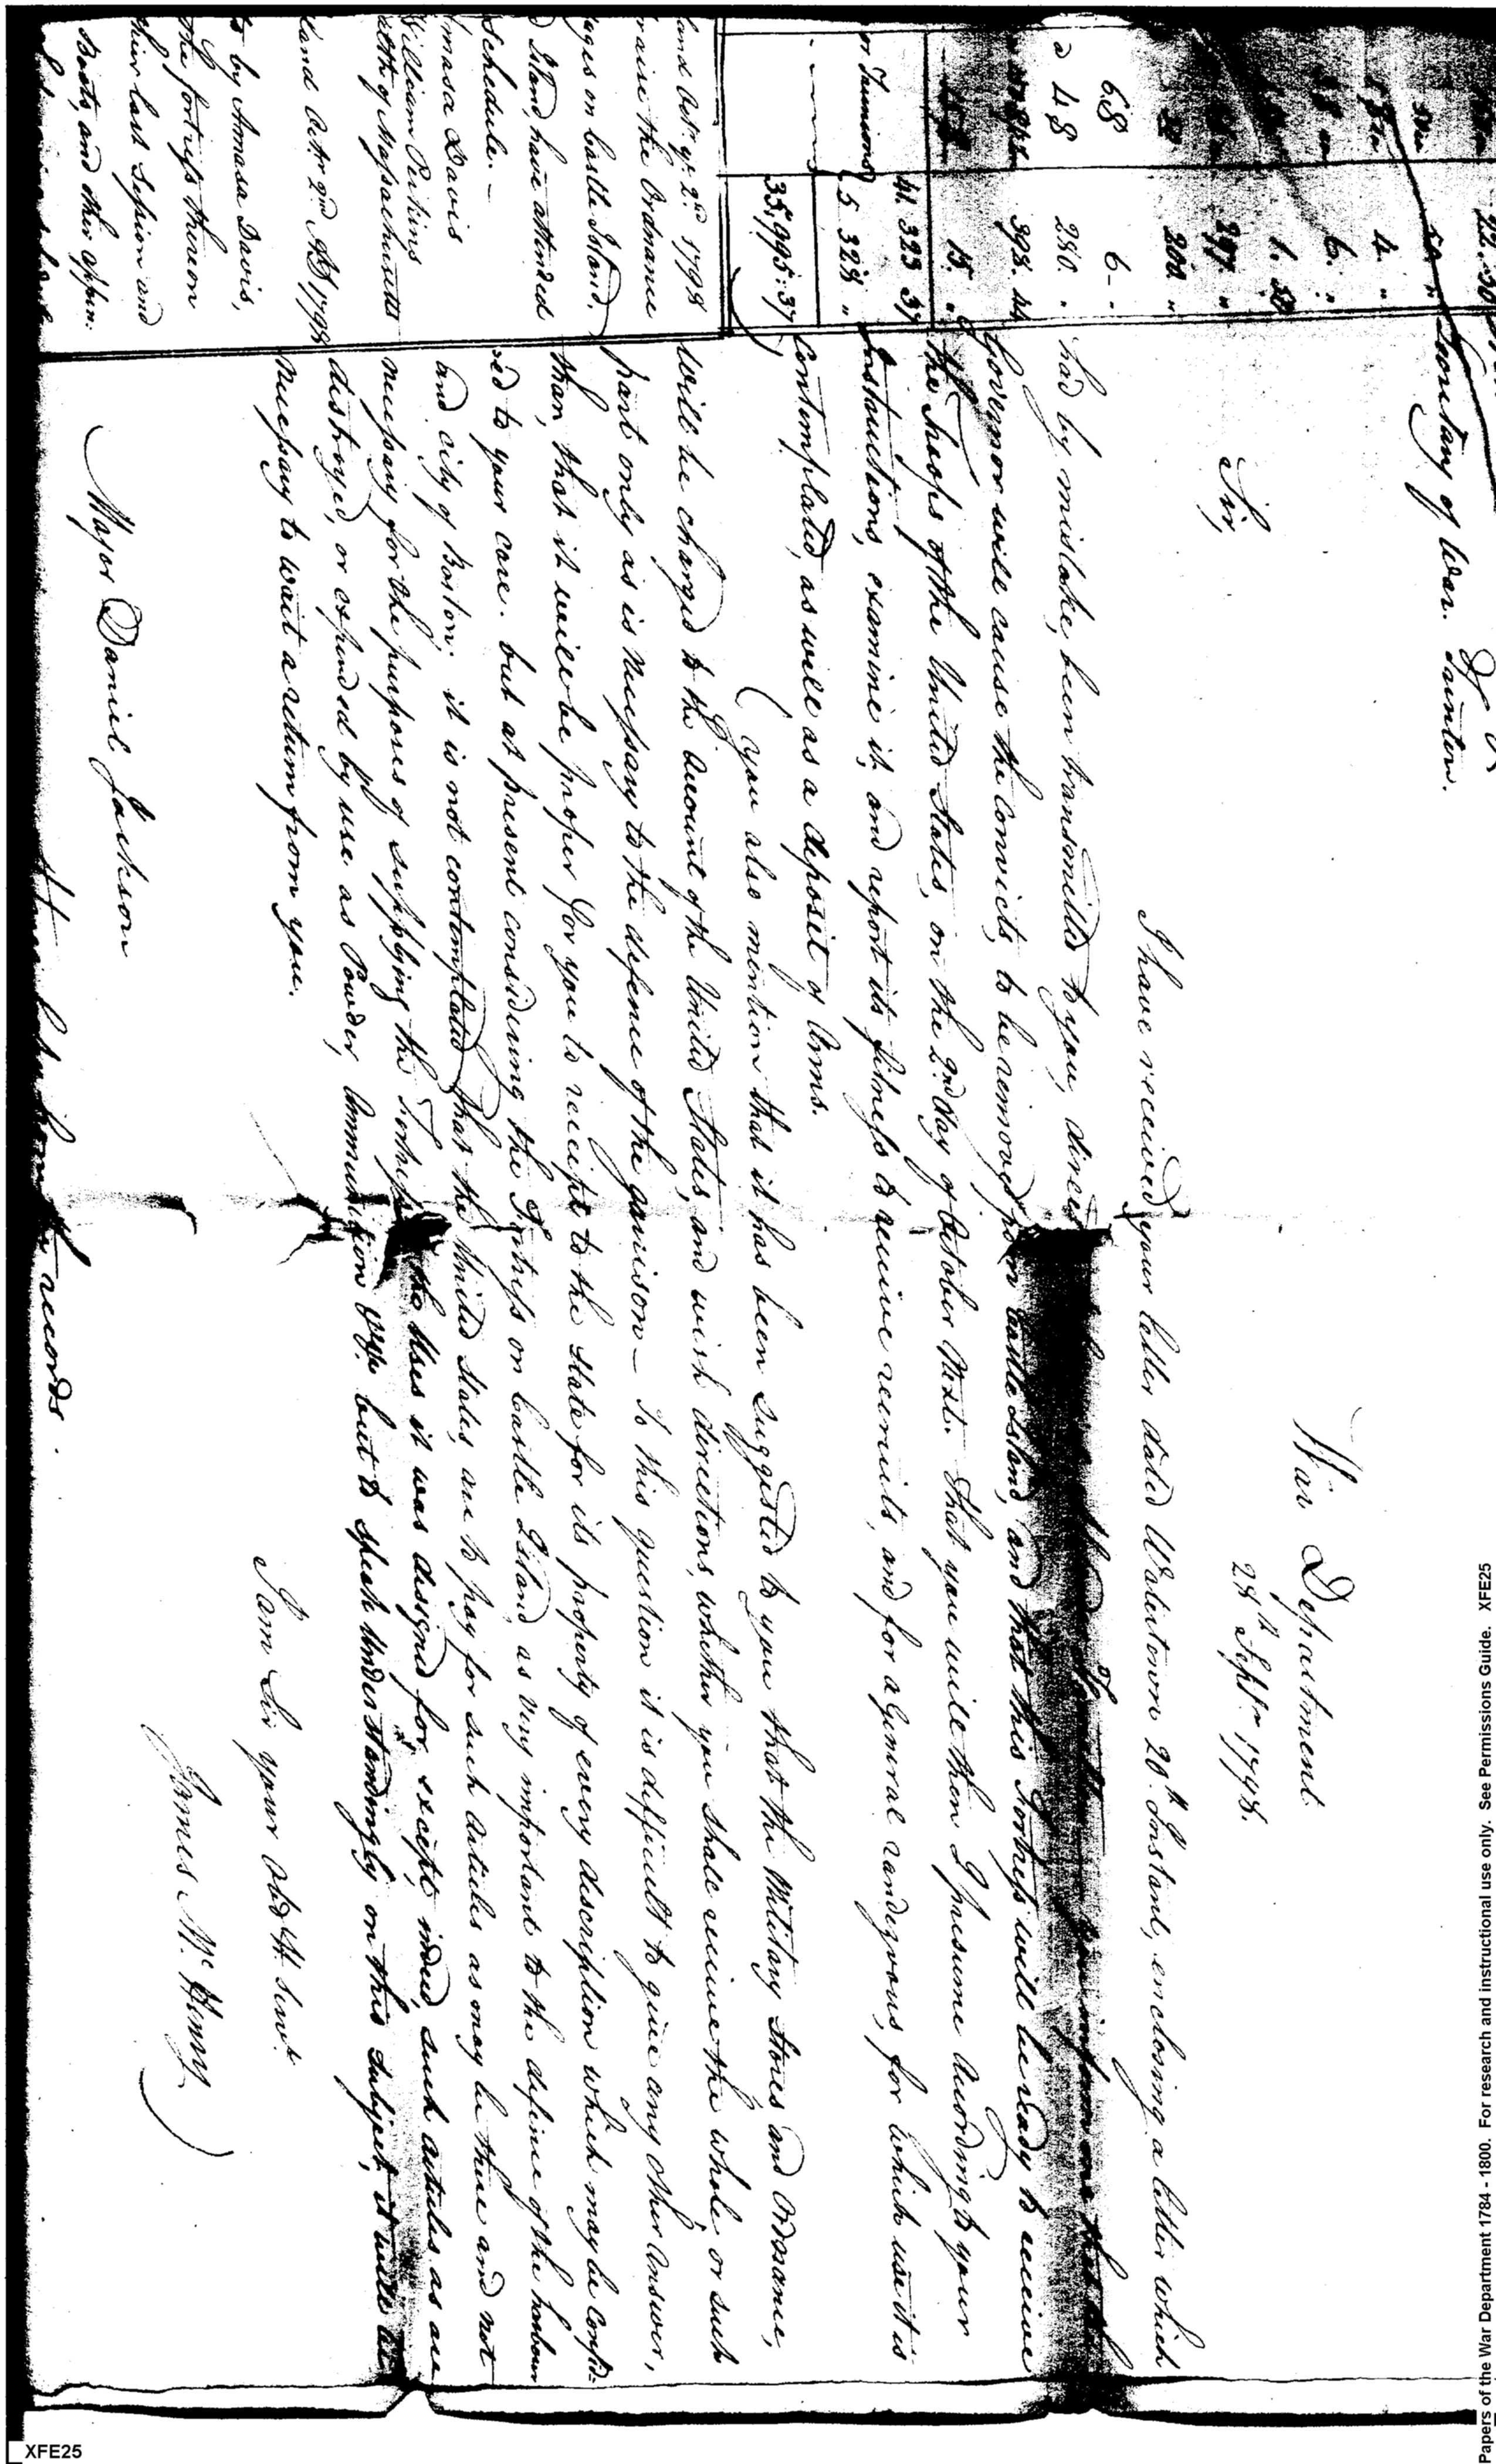 Secretary of War.
War Department
28th Septr. 1798.
Sir,
I have received your letter dated Watertown 20th Instant, enclosing a letter which
had by mistake, been transmitted to you, direct
Governor will cause the Convicts to be removed from Castle Island, and that this Fortress will be ready to receive
the Troops of the United States, on the 2nd day of October Next. That you will then I presume According to your
Instructions, examine it, and report its fitness to receive recruits, and for a General randezvous, for which use it is
Contemplated, as well as a deposit of Arms.
You also mention that it has been suggested to you that the Military Stores and Ordnance,
will be charged to the Account of the United States, and wish directions, whether you shall receive the whole, or such
part only as is necessary to the defence of the garrison — To this question it is difficult to give any other Answer,
than, that it will be proper for you to receipt to the State for its property of every description which may be Confid-
ed to your care. but at present considering the Fortress on Castle Island, as very important to the defence of the harbour
and city of Boston; it is not contemplated that the United States, are to pay for such Articles as may be there and not
necessary for the purposes of supplying the Fortress the Uses it was designed for, except, indeed, such Articles as are
destroyed, or expended by use, as Powder, Ammunition but to speak Understandingly on this Subject, it will be
necessary to wait a return from you.
I am Sir your Obd Ht. Servt.
James McHenry
Major Daniel Jackson
records.
22.50
50 "
4. "
6. "
1. 50
297. "
200. "
68 6 - "
a 48 280. "
398. 44
15. "
41 323 37
or Tennions 5 328 "
35,995:37
land Octr. ye. 2nd 1798
raise the Ordnance
ages on Castle Island,
d Island, have attended
schedule. —
Amasa Davis
William Perkins
alth of Massachusetts
land Octr. 2nd AD 1798
to by Amasa Davis,
the fortress thereon
their last Session and
Boats, and other appen.
Papers of the War Department 1784 - 1800. For research and instructional use only. See Permissions Guide. XFE25
XFE25